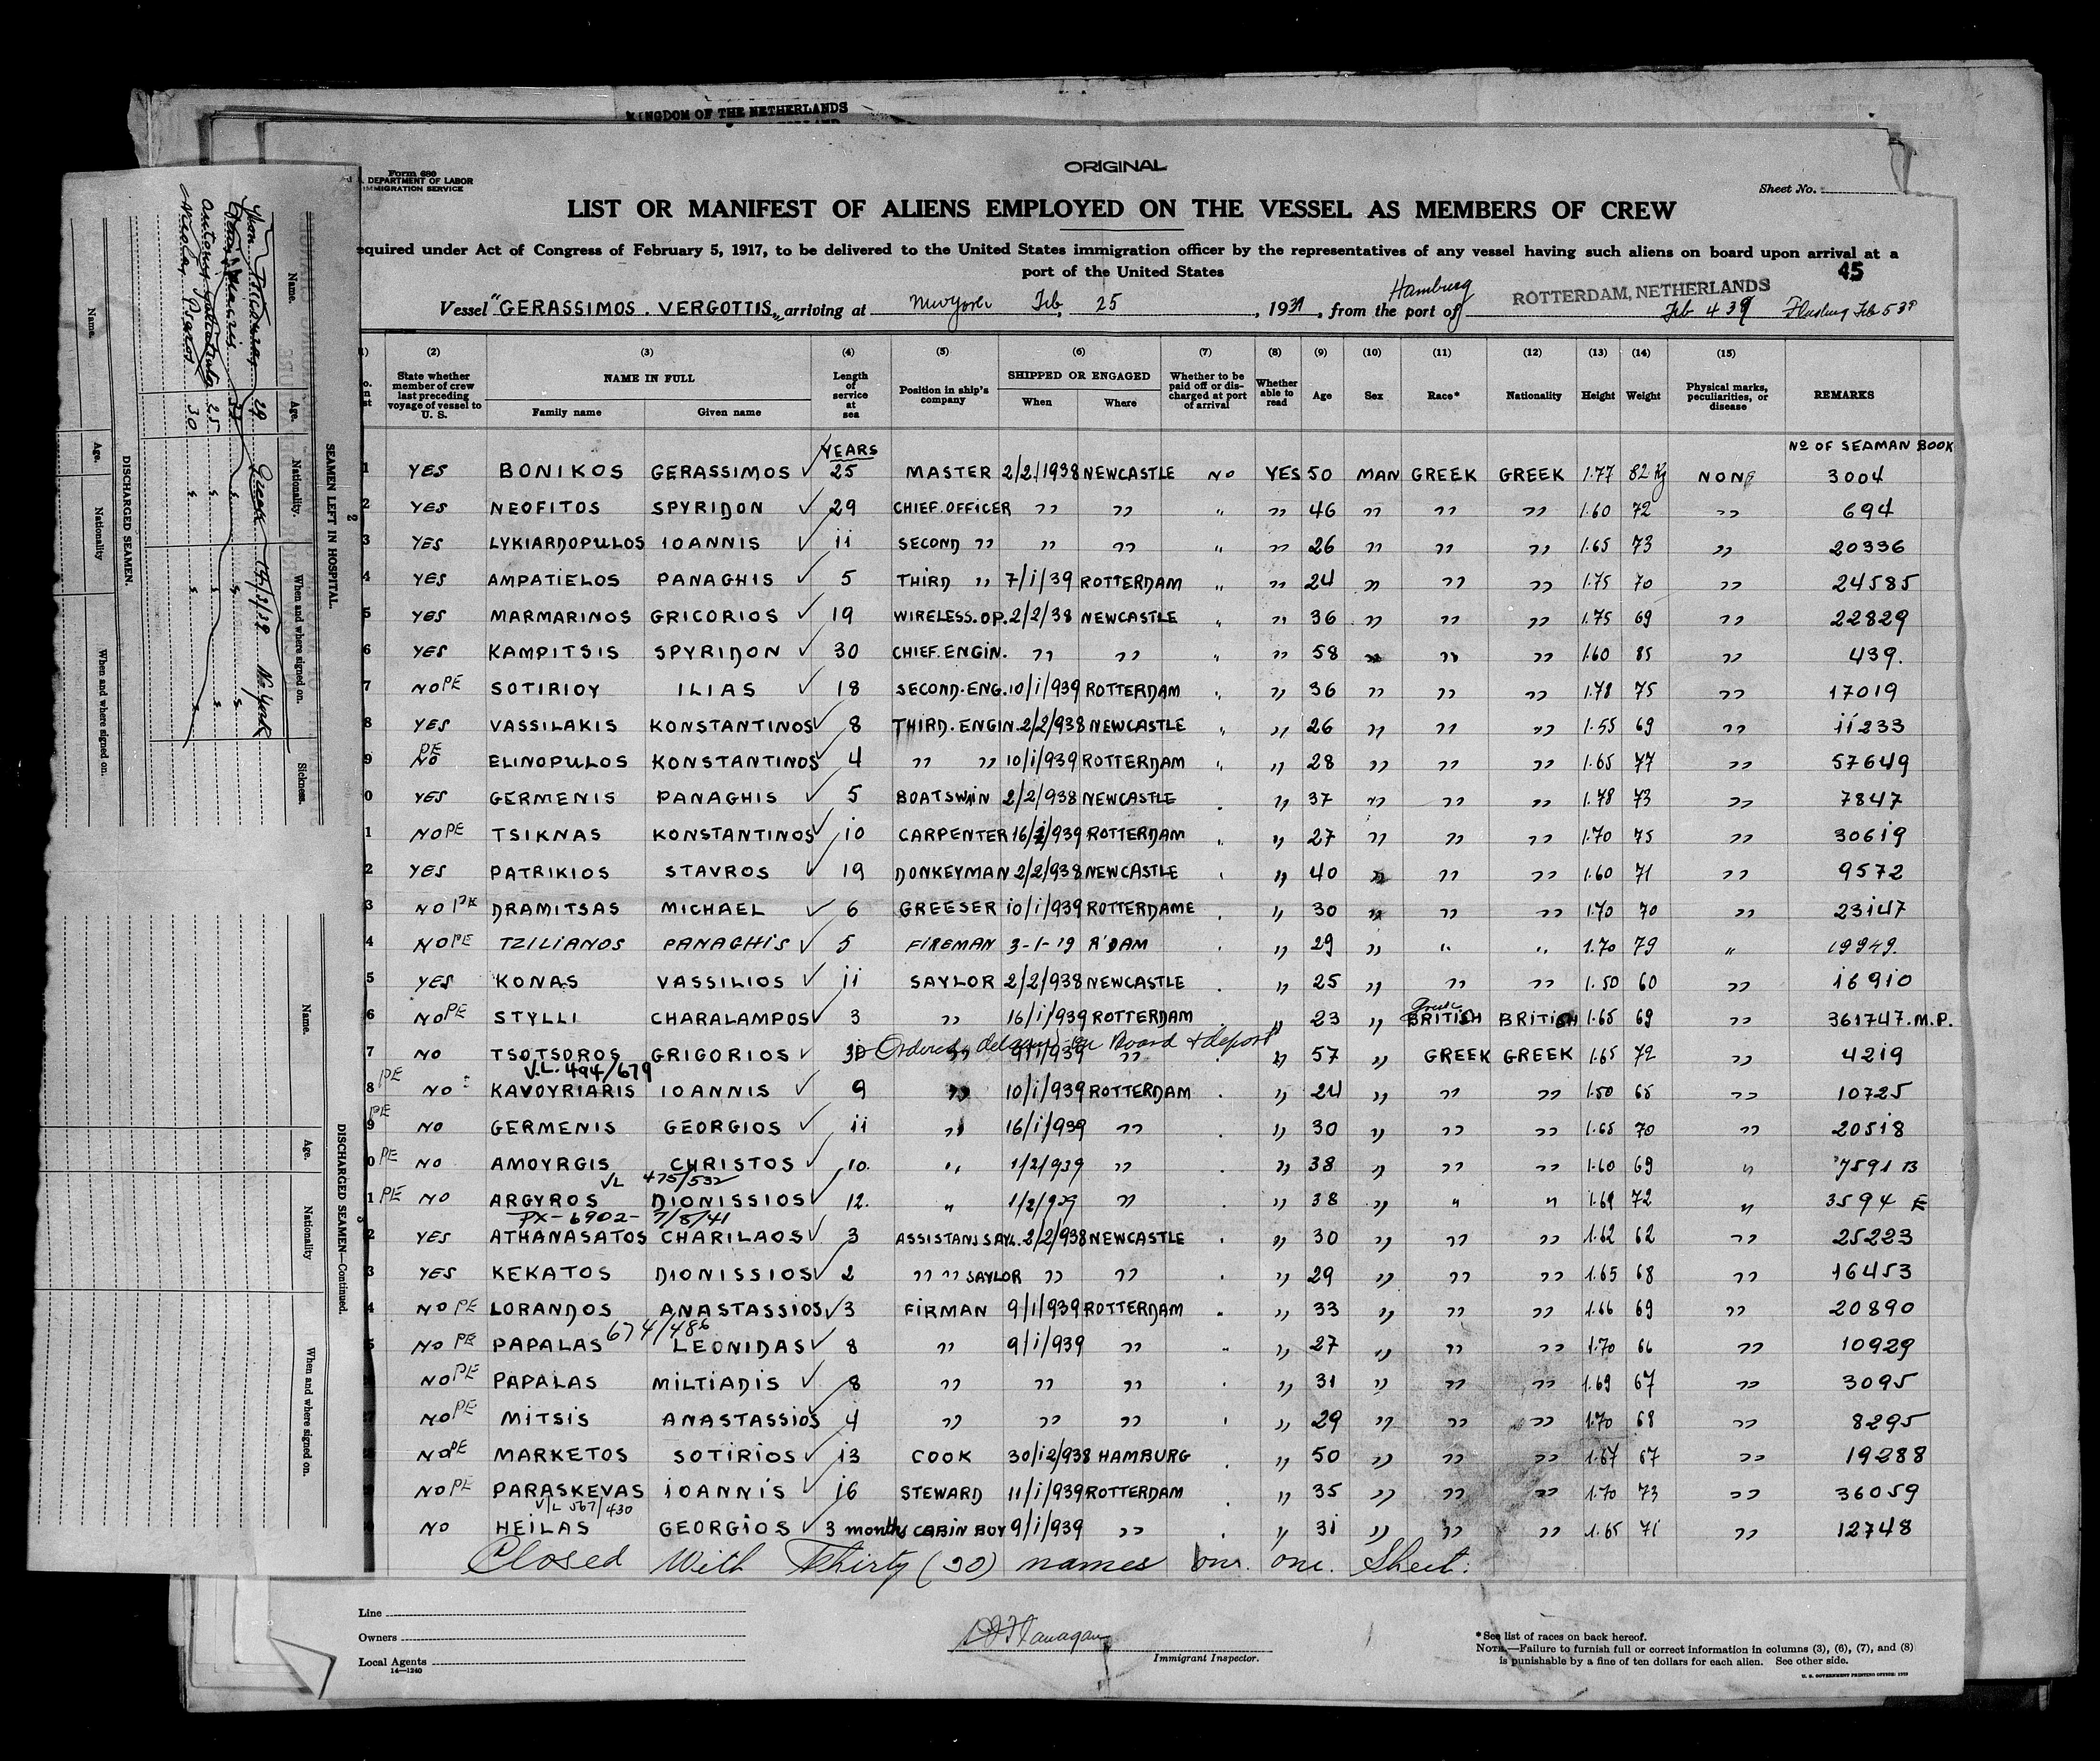 KINGDOM OF THE NETHERLANDS
Form 680
DEPARTMENT OF LABOR
IMMIGRATION SERVICE
ORIGINAL
Sheet No.
LIST OR MANIFEST OF ALIENS EMPLOYED ON THE VESSEL AS MEMBERS OF CREW
equired under Act of Congress of February 5, 1917, to be delivered to the United States immigration officer by the representatives of any vessel having such aliens on board upon arrival at a
port of the United States
45
Vessel "GERASSIMOS. VERGOTTIS" arriving at New York Feb. 25, 1939, from the port of Hamburg ROTTERDAM, NETHERLANDS Feb 4 39 Flushing Feb 5 39
(2) (3) (4) (5) (6) (7) (8) (9) (10) (11) (12) (13) (14) (15)
State whether member of crew last preceding voyage of vessel to U. S. NAME IN FULL Family name Given name Length of service at sea Position in ship's company SHIPPED OR ENGAGED When Where Whether to be paid off or discharged at port of arrival Whether able to read Age Sex Race* Nationality Height Weight Physical marks, peculiarities, or disease REMARKS
YEARS No OF SEAMAN BOOK
1 YES BONIKOS GERASSIMOS ✓ 25 MASTER 2/2/1938 NEWCASTLE NO YES 50 MAN GREEK GREEK 1.77 82 Kg NONE 3004
2 YES NEOFITOS SPYRIDON ✓ 29 CHIEF.OFFICER " " " " 46 " " " 1.60 72 " 694
3 YES LYKIARDOPULOS IOANNIS ✓ ii SECOND " " " " " 26 " " " 1.65 73 " 20336
4 YES AMPATIELOS PANAGHIS ✓ 5 THIRD " 7/i/39 ROTTERDAM " " 24 " " " 1.75 70 " 24585
5 YES MARMARINOS GRICORIOS ✓ 19 WIRELESS.OP. 2/2/38 NEWCASTLE " " 36 " " " 1.75 69 " 22829
6 YES KAMPITSIS SPYRIDON ✓ 30 CHIEF.ENGIN. " " " " 58 " " " 1.60 85 " 439.
7 NO PE SOTIRIOY ILIAS ✓ 18 SECOND.ENG. 10/i/939 ROTTERDAM " " 36 " " " 1.78 75 " 17019
8 YES VASSILAKIS KONSTANTINOS ✓ 8 THIRD.ENGIN. 2/2/938 NEWCASTLE " " 26 " " " 1.55 69 " ii233
9 PE NO ELINOPULOS KONSTANTINOS ✓ 4 " " 10/i/939 ROTTERDAM " " 28 " " " 1.65 77 " 57649
0 YES GERMENIS PANAGHIS ✓ 5 BOATSWAIN 2/2/938 NEWCASTLE " " 37 " " " 1.78 73 " 7847
1 NO PE TSIKNAS KONSTANTINOS ✓ io CARPENTER 16/i/939 ROTTERDAM " " 27 " " " 1.70 75 " 30619
2 YES PATRIKIOS STAVROS ✓ 19 DONKEYMAN 2/2/938 NEWCASTLE " " 40 " " " 1.60 71 " 9572
3 NO PE DRAMITSAS MICHAEL ✓ 6 GREESER io/i/939 ROTTERDAME " " 30 " " " 1.70 70 " 23i47
4 NO PE TZILIANOS PANAGHIS ✓ 5 FIREMAN 3-1-19 R'DAM " " 29 " " " 1.70 79 " 19949.
5 YES KONAS VASSILIOS ✓ ii SAYLOR 2/2/938 NEWCASTLE " " 25 " " " 1.50 60 " i69i0
6 NO PE STYLLI CHARALAMPOS ✓ 3 " 16/i/939 ROTTERDAM " 23 " Greek BRITISH BRITISH 1.65 69 " 361747.M.P.
7 NO TSOTSOROS GRIGORIOS ✓ 30 " 9/1/939 " Ordered detained on Board & deport " 57 " GREEK GREEK 1.65 72 " 42i9
V.L. 494/679
8 PE NO KAVOYRIARIS IOANNIS ✓ 9 " 10/i/939 ROTTERDAM " " 24 " " " 1.50 65 " 10725
9 PE NO GERMENIS GEORGIOS ✓ ii " 16/i/939 " " " 30 " " " 1.65 70 " 205i8
0 PE NO AMOYRGIS CHRISTOS ✓ 10. " 1/2/939 " " " 38 " " " 1.60 69 " 7591 B
VL 475/532
1 PE NO ARGYROS DIONISSIOS ✓ 12. " 1/2/939 " " " 38 " " " 1.69 72 " 3594 E
PX-6902- 7/8/41
2 YES ATHANASATOS CHARILAOS ✓ 3 ASSISTANS SAYL. 2/2/938 NEWCASTLE " " 30 " " " 1.62 62 " 25223
3 YES KEKATOS DIONISSIOS ✓ 2 " " SAYLOR " " " " 29 " " " 1.65 68 " 16453
4 NO PE LORANDOS ANASTASSIOS ✓ 3 FIRMAN 9/1/939 ROTTERDAM " " 33 " " " 1.66 69 " 20890
674/486
5 NO PE PAPALAS LEONIDAS ✓ 8 " 9/i/939 " " " 27 " " " 1.70 66 " 10929
NO PE PAPALAS MILTIADIS ✓ 8 " " " " " 31 " " " 1.69 67 " 3095
NO PE MITSIS ANASTASSIOS ✓ 4 " " " " " 29 " " " 1.70 68 " 8295
NO PE MARKETOS SOTIRIOS ✓ i3 COOK 30/i2/938 HAMBURG " " 50 " " " 1.67 67 " 19288
NO PE PARASKEVAS IOANNIS ✓ i6 STEWARD 11/i/939 ROTTERDAM " " 35 " " " 1.70 73 " 36059
V/L 567/430
NO HEILAS GEORGIOS ✓ 3 months CABIN BOY 9/i/939 " " " 3i " " " 1.65 71 " 12748
Closed With Thirty (30) names on one Sheet.
Line
Owners
Local Agents
14—1240
Flanagan
Immigrant Inspector.
*See list of races on back hereof.
NOTE.—Failure to furnish full or correct information in columns (3), (6), (7), and (8)
is punishable by a fine of ten dollars for each alien. See other side.
U. S. GOVERNMENT PRINTING OFFICE:
SEAMEN LEFT IN HOSPITAL.
Name. Age. Nationality. When and where signed on. Sickness.
29 Greek 14/2/39 N. York
25
30
DISCHARGED SEAMEN.
Name. Age. Nationality When and where signed on.
2
DISCHARGED SEAMEN—Continued.
Name. Age. Nationality When and where signed on.